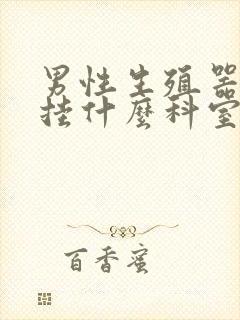 男性生殖器
挂什麼科室
百香蜜